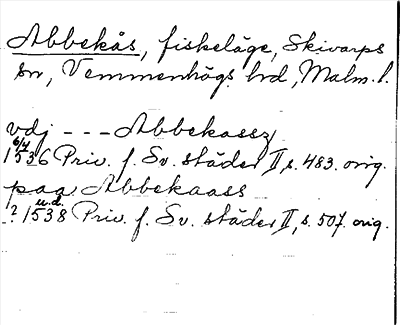 Abbekås, fiskeläge, Skivarps
sn, Vemmenhögs hd, Malm. l.
vdj - - - Abbekassz
6/4
1536 Priv. f. Sv. städer II, s. 483. orig.
paa Abbekaass
u.d.
? 1538 Priv. f. Sv. städer II, s. 507. orig.